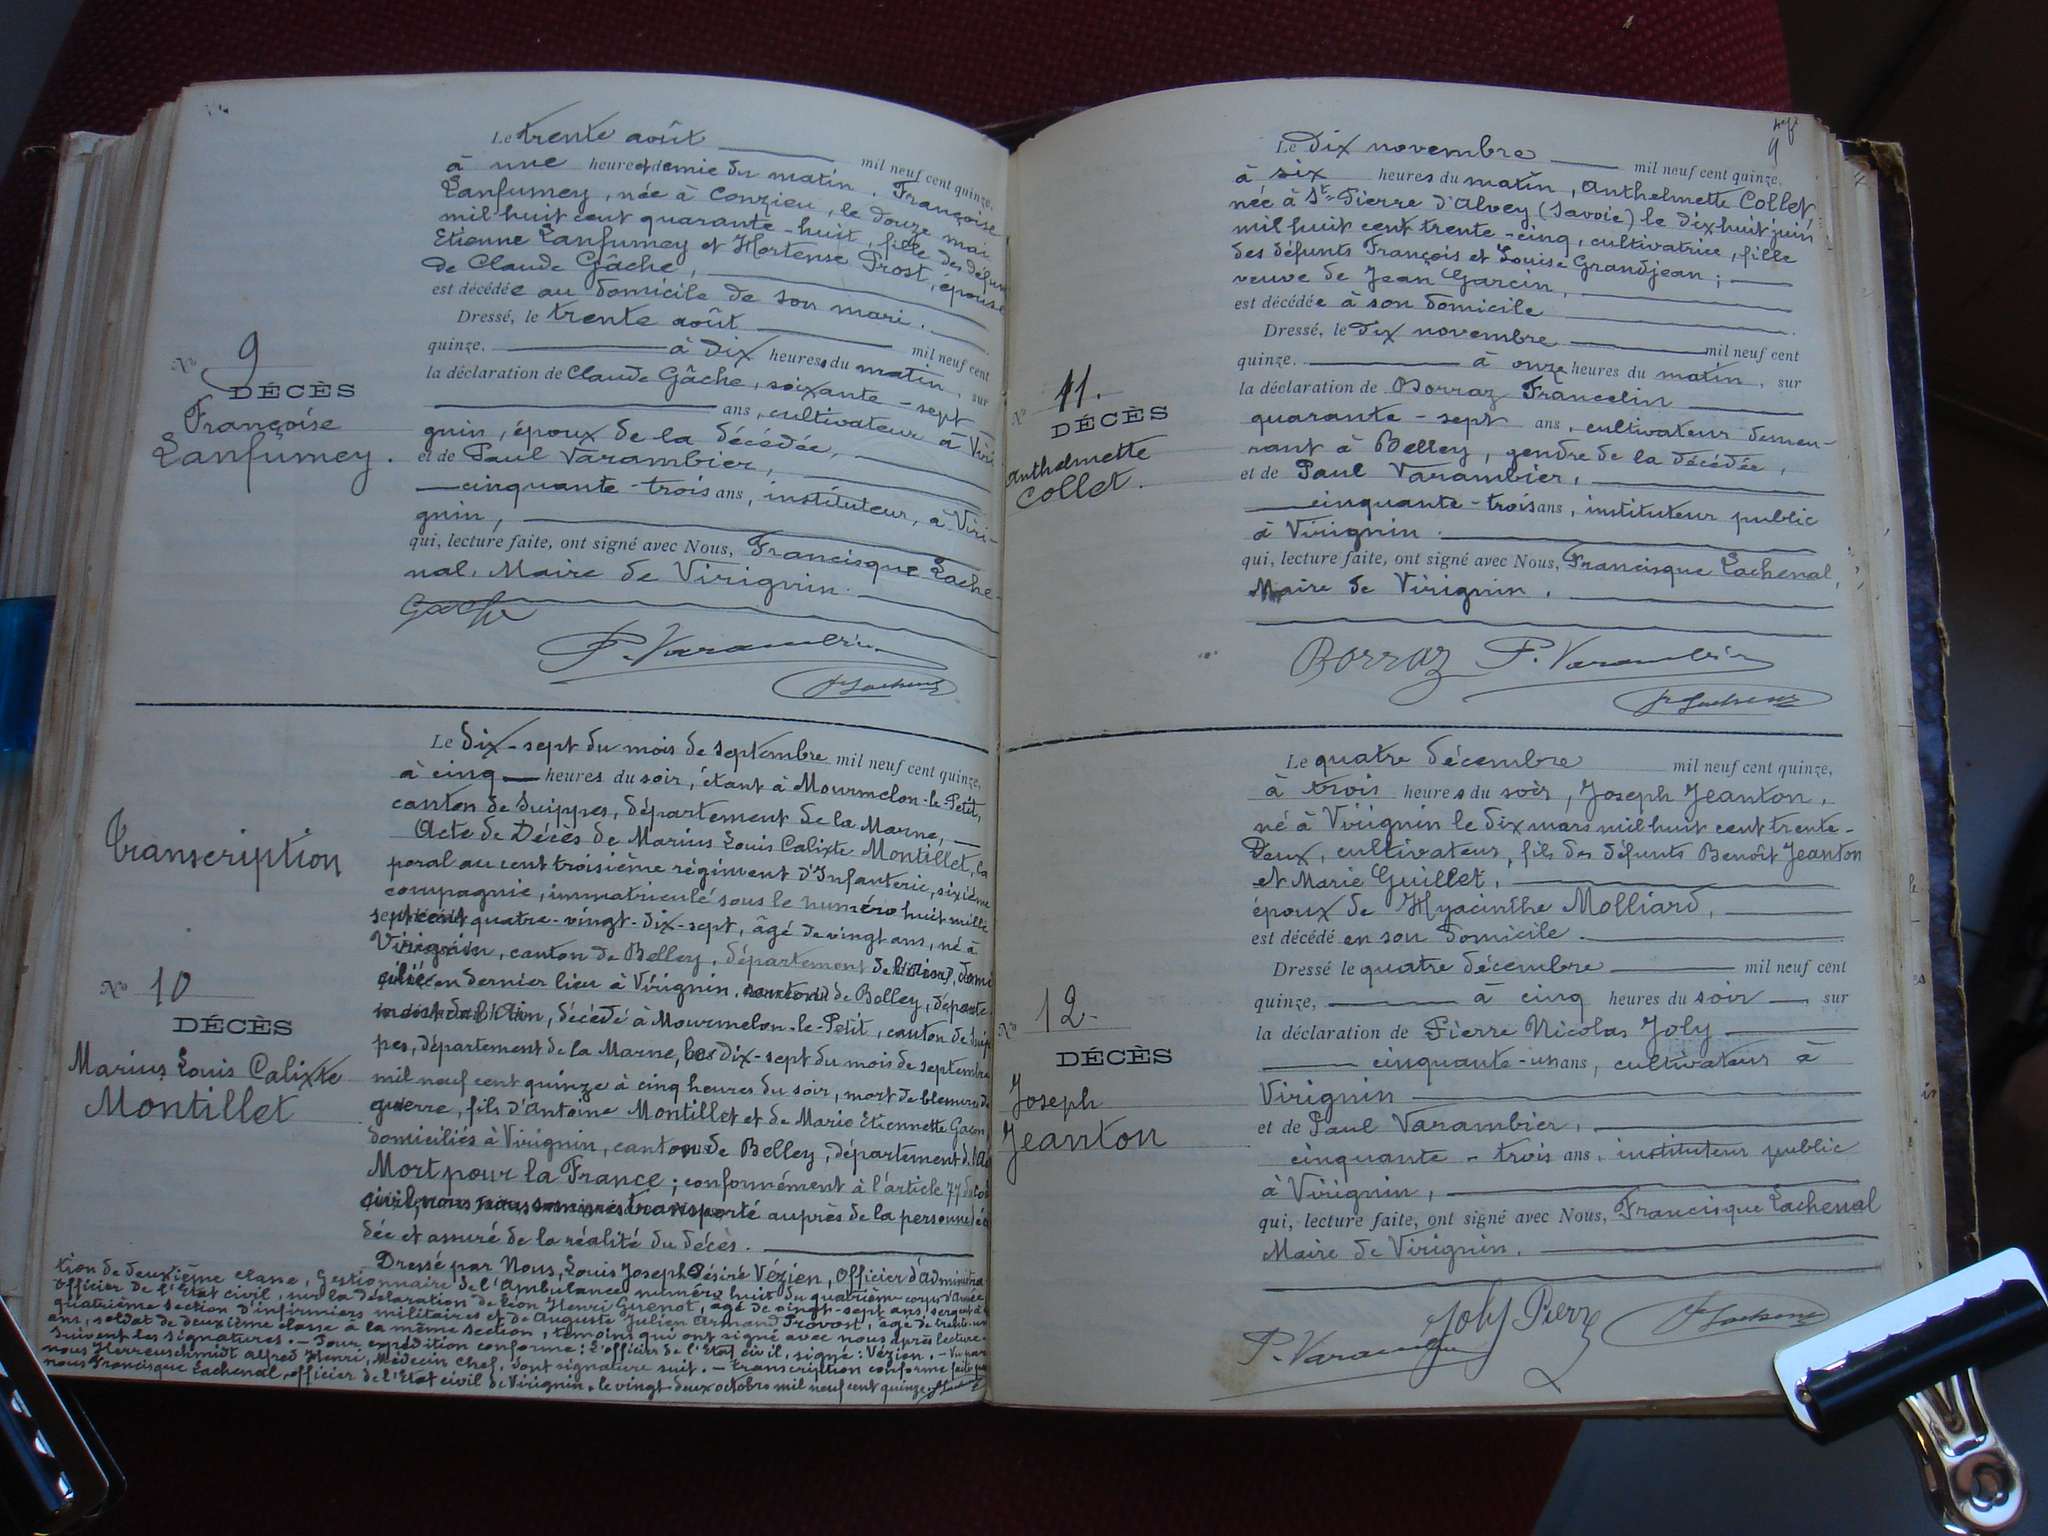 Le trente août mil neuf cent quinze,
à une heure et demie du matin, Françoise
Lanfumey, née à Conzieu, le douze mai
mil huit cent quarante-huit, fille des défunts
Etienne Lanfumey et Hortense Prost, épouse
de Claude Gâche,
est décédée au domicile de son mari.
Dressé, le trente août mil neuf cent
quinze. à dix heures du matin, sur
la déclaration de Claude Gâche, soixante-sept
ans, cultivateur à Viri-
gnin, époux de la décédée,
et de Paul Varambier,
cinquante-trois ans, instituteur, à Viri-
gnin,
qui, lecture faite, ont signé avec Nous, Francisque Lache-
nal, Maire de Virignin.
Gache
P. Varambier
No 9
DÉCÈS
Françoise
Lanfumey.
Le dix-sept du mois de septembre mil neuf cent quinze,
à cinq heures du soir, étant à Mourmelon-le-Petit,
canton de Suippes, département de la Marne,
Acte de Décès de Marius Louis Calixte Montillet, ca
poral au cent troisième régiment d'Infanterie, sixième
compagnie, immatriculé sous le numéro huit mille
sept cent quatre-vingt-dix-sept, âgé de vingt ans, né à
Virignin, canton de Belley, département de l'Ain, domi
cilié en dernier lieu à Virignin, canton de Belley, départe
ment de l'Ain, décédé à Mourmelon-le-Petit, canton de Suip
pes, département de la Marne, le dix-sept du mois de septembre
mil neuf cent quinze à cinq heures du soir, mort de blessures de
guerre, fils d'Antoine Montillet et de Marie Etiennette Gacon
domiciliés à Virignin, canton de Belley, département de l'Ain
Mort pour la France; conformément à l'article 77 du code
civil, nous nous sommes transporté auprès de la personne décé
dée et assuré de la réalité du décès.
Dressé par Nous, Louis Joseph Désiré Vézien, Officier d'administra
tion de deuxième classe, Gestionnaire de l'Ambulance numéro huit du quatrième corps d'Armée
officier de l'Etat civil, sur la déclaration de Léon Henri Guenot, âgé de vingt-sept ans, sergent à la
quatrième section d'infirmiers militaires et de Auguste Julien Armand Provost, âgé de trente-un
ans, soldat de deuxième classe à la même section, témoins qui ont signé avec nous après lecture.
Suivent les signatures. - Pour expédition conforme: L'officier de l'Etat civil, signé: Vézien. - Vu par
nous Herrenschmidt Alfred Henri, Médecin Chef, dont signature suit. - Transcription conforme faite par
nous Francisque Lachenal, officier de l'Etat civil de Virignin, le vingt deux octobre mil neuf cent quinze.
Transcription
No 10
DÉCÈS
Marius Louis Calixte
Montillet
Le dix novembre mil neuf cent quinze,
à six heures du matin, Anthelmette Collet,
née à St Pierre d'Alvey (Savoie) le dix huit juin
mil huit cent trente-cinq, cultivatrice, fille
des défunts François et Louise Grandjean;
veuve de Jean Garcin,
est décédée à son domicile
Dressé, le dix novembre mil neuf cent
quinze. à onze heures du matin, sur
la déclaration de Borraz Francelin
quarante-sept ans, cultivateur demeu-
rant à Belley, gendre de la décédée,
et de Paul Varambier,
cinquante-trois ans, instituteur public
à Virignin.
qui, lecture faite, ont signé avec Nous, Francisque Lachenal,
Maire de Virignin,
Borraz P. Varambier
No 11.
DÉCÈS
Anthelmette
Collet.
Le quatre décembre mil neuf cent quinze,
à trois heures du soir, Joseph Jeanton,
né à Virignin le dix mars mil huit cent trente-
Deux, cultivateur, fils des défunts Benoît Jeanton
et Marie Guillet,
époux de Hyacinthe Molliard,
est décédé en son domicile.
Dressé le quatre décembre mil neuf cent
quinze, à cinq heures du soir, sur
la déclaration de Pierre Nicolas Joly
cinquante-un ans, cultivateur à
Virignin
et de Paul Varambier,
cinquante-trois ans, instituteur public
à Virignin,
qui, lecture faite, ont signé avec Nous, Francisque Lachenal
Maire de Virignin.
P. Varambier Joly Pierre
No 12
DÉCÈS
Joseph
Jeanton